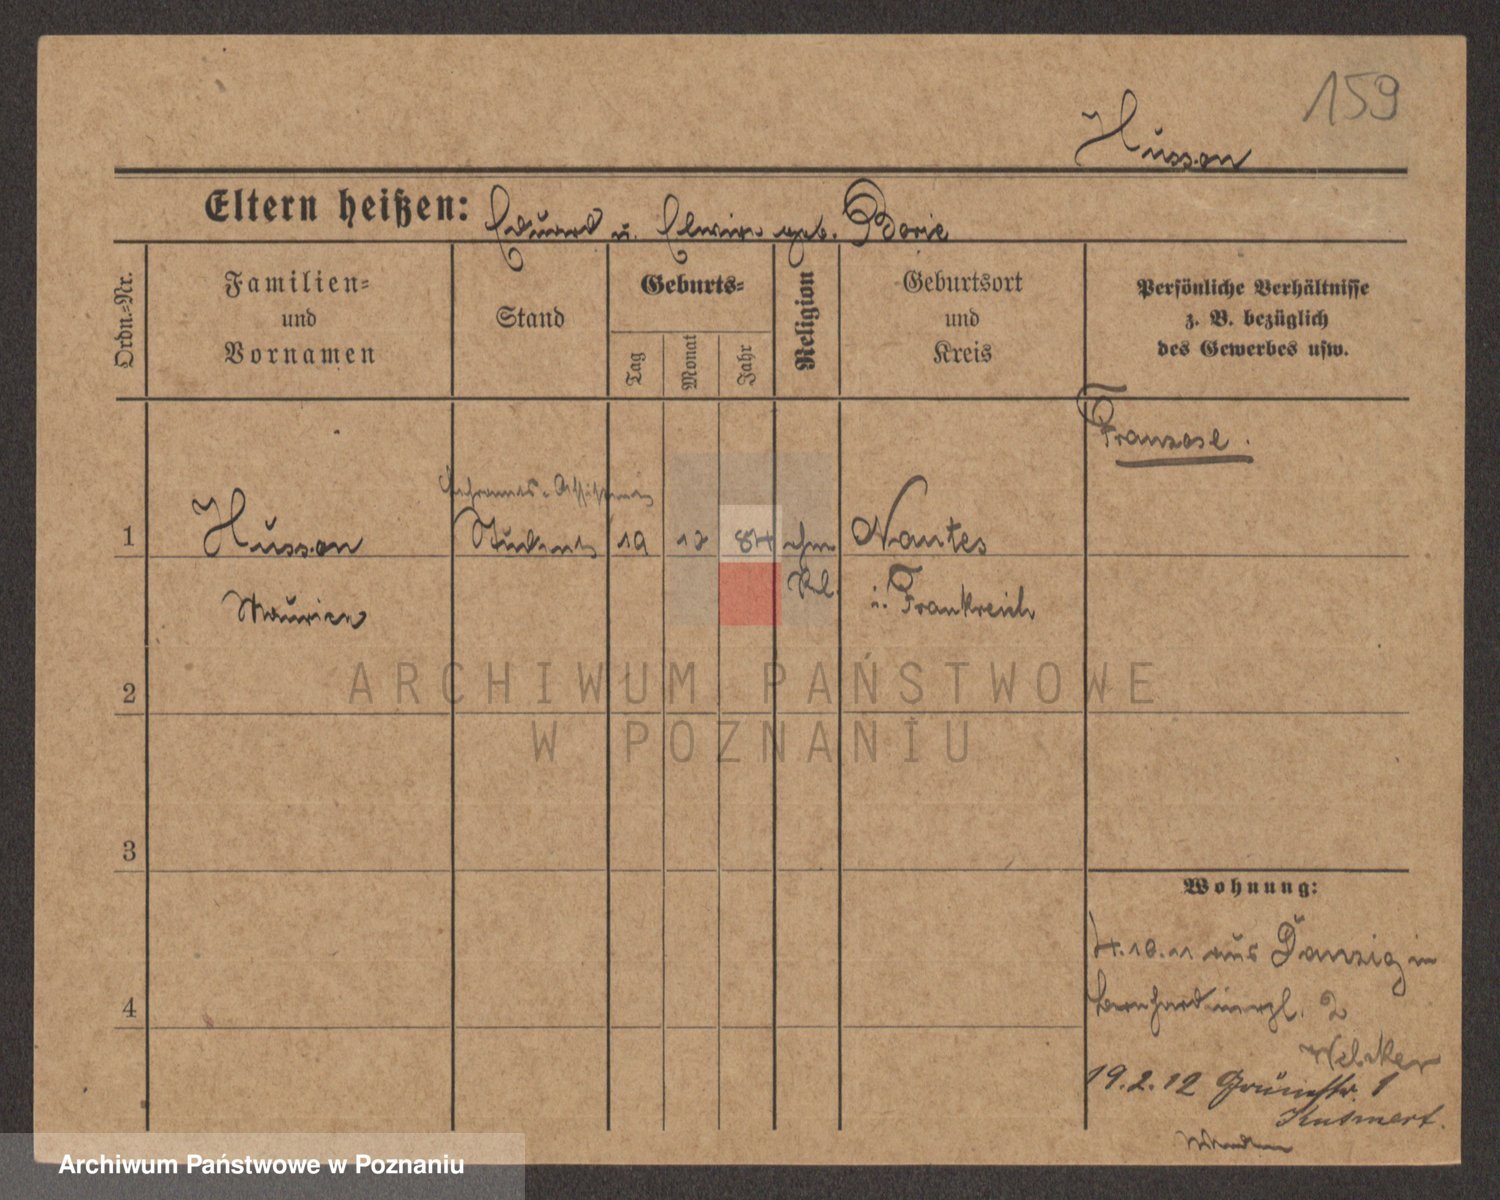 159
Husson
Eltern heißen: Eduard u. Elwire geb. Borie
Ordn.-Nr.
Familien-
und
Vornamen
Stand
Geburts-
Tag
Monat
Jahr
Religion
Geburtsort
und
Kreis
Persönliche Verhältnisse
z. B. bezüglich
des Gewerbes usw.
Franzose.
1 Husson 19 12 84 Nantes
Maurice i. Frankreich
2
3
4
Wohnung:
4.10.11 aus Danzig in
Bernhardinerpl. 2
19.2.12 Grünestr. 1
ARCHIWUM PAŃSTWOWE
W POZNANIU
Archiwum Państwowe w Poznaniu